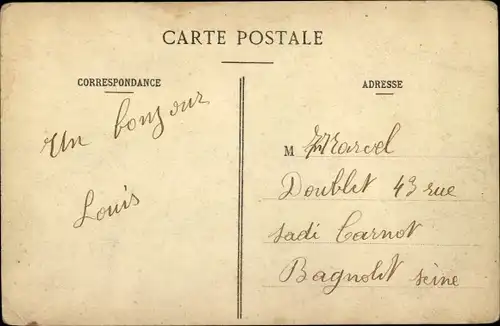 CARTE POSTALE
CORRESPONDANCE
Un bonjour
Louis
ADRESSE
M Marcel
Doublet 43 rue
sadi Carnot
Bagnolet seine